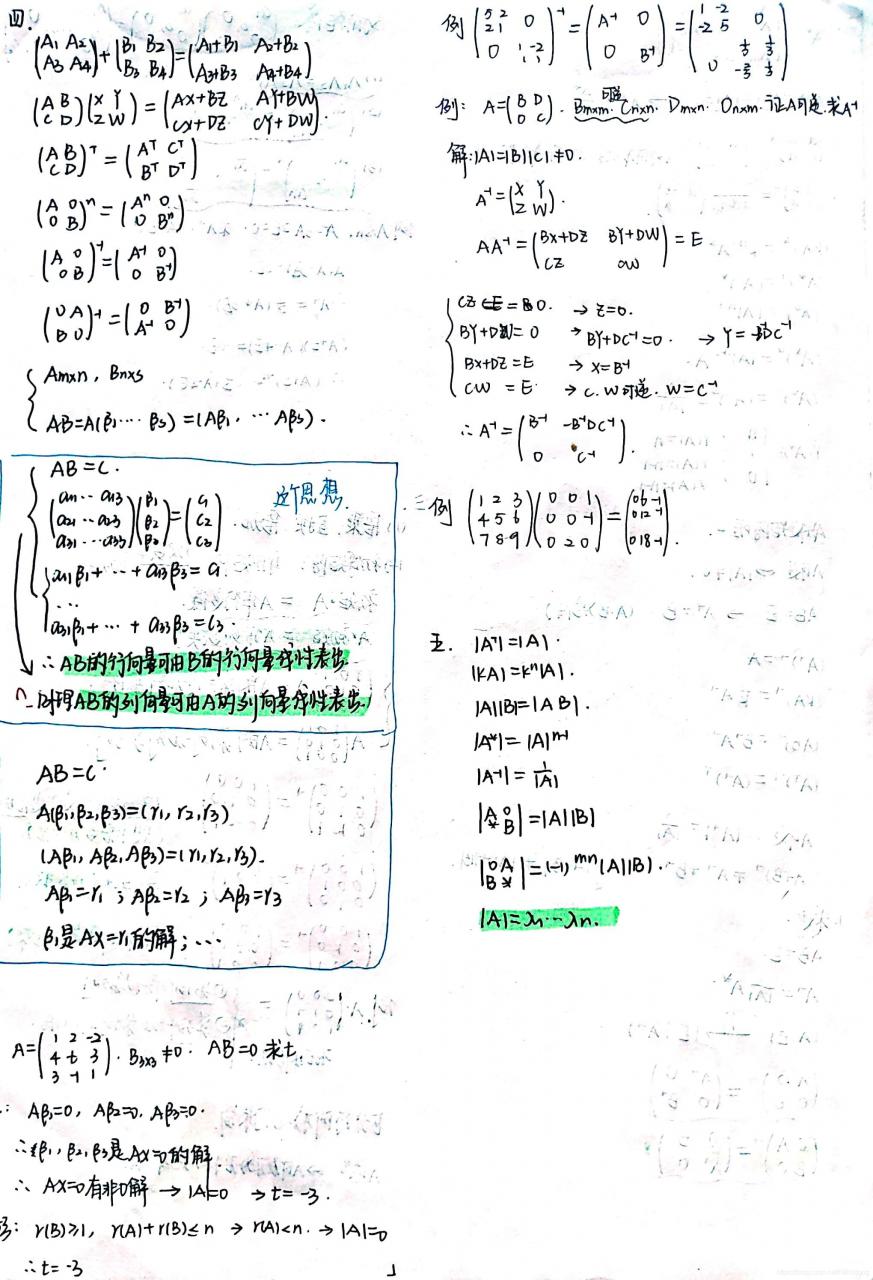 四.
(A₁ A₂ / A₃ A₄) + (B₁ B₂ / B₃ B₄) = (A₁+B₁ A₂+B₂ / A₃+B₃ A₄+B₄)
(A B / C D)(X Y / Z W) = (AX+BZ AY+BW / CX+DZ CY+DW).
(A B / C D)ᵀ = (Aᵀ Cᵀ / Bᵀ Dᵀ)
(A 0 / 0 B)ⁿ = (Aⁿ 0 / 0 Bⁿ)
(A 0 / 0 B)⁻¹ = (A⁻¹ 0 / 0 B⁻¹)
(0 A / B 0)⁻¹ = (0 B⁻¹ / A⁻¹ 0)
{ Amxn, Bnxs
AB=A(β₁…βs) = (Aβ₁, … Aβs).
AB=C.
(a₁₁ … a₁₃ / a₂₁ … a₂₃ / a₃₁ … a₃₃)(β₁ / β₂ / β₃) = (C₁ / C₂ / C₃)
这个思想.
{ a₁₁β₁ + … + a₁₃β₃ = C₁
…
a₃₁β₁ + … + a₃₃β₃ = C₃.
∴ AB的行向量可由B的行向量线性表出.
同理AB的列向量可由A的列向量线性表出.
AB=C.
A(β₁,β₂,β₃)=(r₁, r₂, r₃)
(Aβ₁, Aβ₂, Aβ₃)=(r₁, r₂, r₃).
Aβ₁=r₁ ; Aβ₂=r₂ ; Aβ₃=r₃
β₁是AX=r₁的解; …
A=(1 2 -2 / 4 t 3 / 3 -1 1). B₃ₓ₃≠0. AB=0 求t.
: Aβ₁=0, Aβ₂=0. Aβ₃=0.
∴ β₁, β₂, β₃是AX=0的解
∴ AX=0有非0解 → |A|=0 → t=-3.
: r(B)≥1, r(A)+r(B)≤n → r(A)<n. → |A|=0
∴ t=-3
例 (5 2 0 / 2 1 / 0 1 -2 / 1 1)⁻¹ = (A⁻¹ 0 / 0 B⁻¹) = (1 -2 0 / -2 5 / 0 1/3 2/3 / -1/3 1/3)
例: A=(B D / 0 C). Bmxm. Cnxn. 可逆 Dmxn. Onxm. 证A可逆.求A⁻¹
解: |A|=|B||C|≠0.
A⁻¹=(X Y / Z W).
AA⁻¹ = (BX+DZ BY+DW / CZ CW) = E
{ CZ = 0. → Z=0.
BY+DW=0 → BY+DC⁻¹=0. → Y=-B⁻¹DC⁻¹
BX+DZ=E → X=B⁻¹
CW = E. → C.W可逆. W=C⁻¹
∴ A⁻¹ = (B⁻¹ -B⁻¹DC⁻¹ / 0 C⁻¹).
例 (1 2 3 / 4 5 6 / 7 8 9)(0 0 1 / 0 0 -1 / 0 2 0) = (0 6 -1 / 0 12 -1 / 0 18 -1).
五. |Aᵀ|=|A|.
|kA|=kⁿ|A|.
|A||B|=|AB|.
|A*|=|A|ⁿ⁻¹
|A⁻¹|=1/|A|
|A 0 / * B| = |A||B|
|0 A / B *| = (-1)ᵐⁿ|A||B|.
|A|=λ₁…λn.